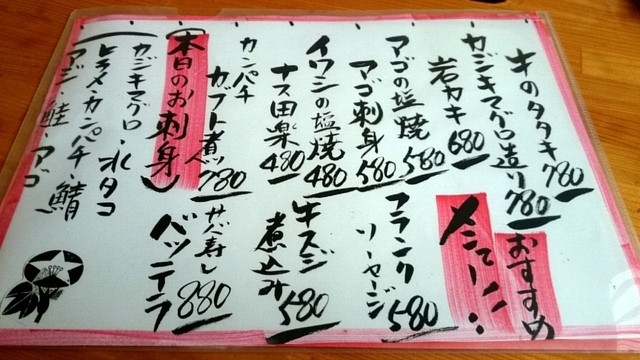 おすすめ
メニュー!
牛のタタキ 780
カジキマグロ造り 780
岩カキ 680
アゴの塩焼 580
アゴ刺身 580
イワシの塩焼 480
ナス田楽 480
カンパチ
カブト煮 780
フランク
ソーセージ 580
牛スジ
煮込み 580
サバ寿し
バッテラ 880
(本日のお刺身)
カジキマグロ・水タコ
ヒラメ・カンパチ・鯖
アジ・鮭・アゴ